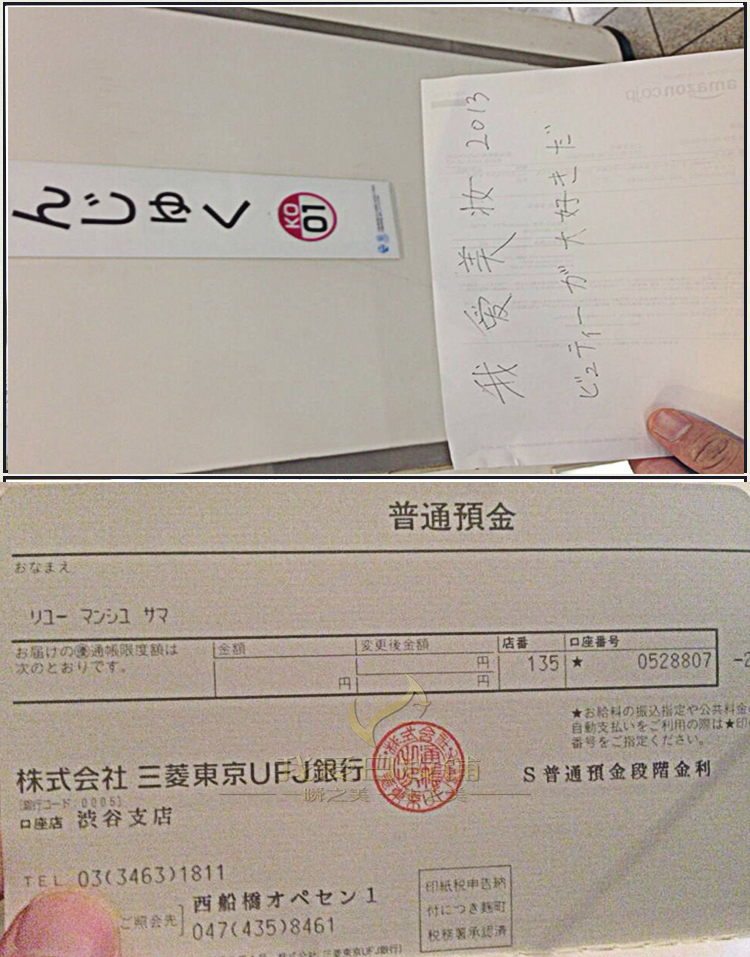 んじゅく
KO
01
amazon.co.jp
我 爱 美 妆 2013
ビューティーが大好きだ
普通預金
おなまえ
リユー マンシユ サマ
お届けの㊝通帳限度額は
次のとおりです。
金額
円
変更後金額
円
円
店番
135
口座番号
★ 0528807
-2
★お給料の振込指定や公共料金
自動支払いをご利用の際は★印
番号をご指定ください。
株式会社 三菱東京UFJ銀行
[銀行コード:0005]
口座店 渋谷支店
S普通預金段階金利
一瞬之美
TEL 03(3463)1811
ご照会先]
西船橋オペセン1
047(435)8461
印紙税申告納
付につき麹町
税務署承認済
株式会社 三菱東京UFJ銀行)